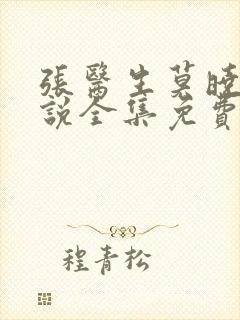 張醫生莫曉
說全集免費
程青松